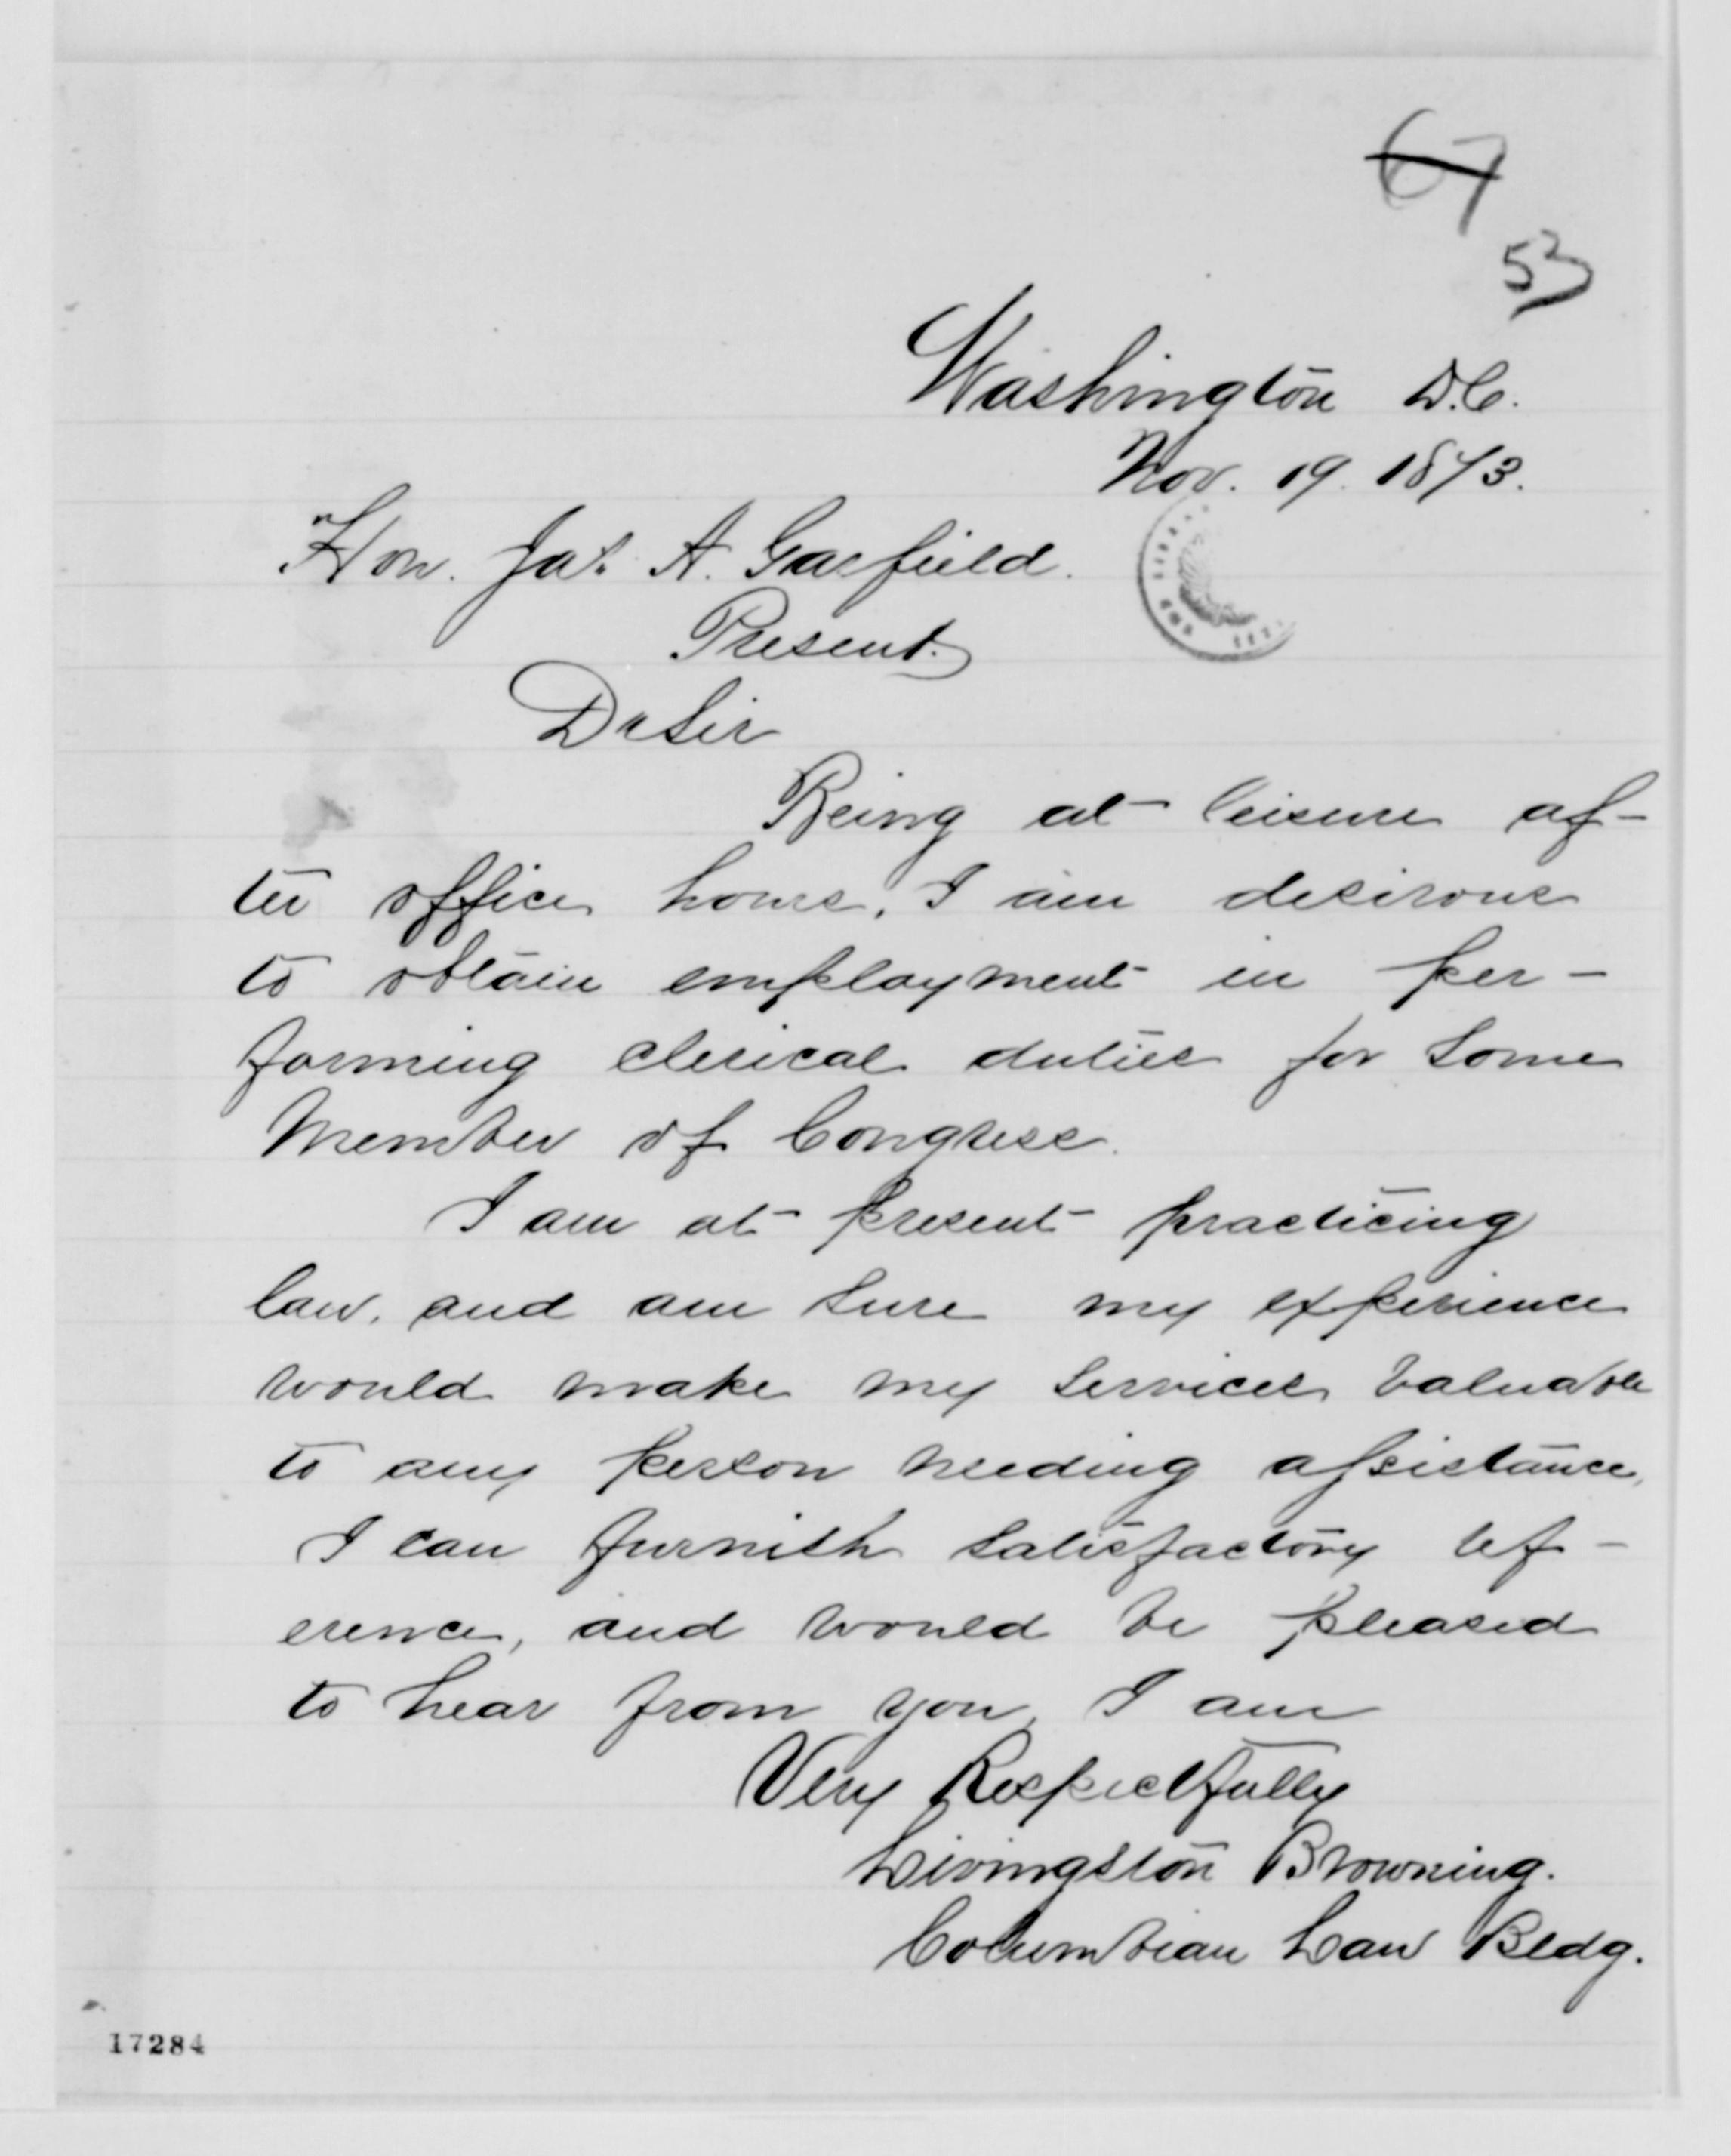 67
53
Washington D.C.
Nov. 19. 1873.
Hon. Jas. A. Garfield.
Present.
Dr Sir
Being at leisure af-
ter office hours, I am desirous
to obtain employment in per-
forming clerical duties for some
Member of Congress.
I am at present practicing
law, and am sure my experience
would make my services valuable
to any person needing assistance,
I can furnish satisfactory ref-
erence, and would be pleased
to hear from you, I am
Very Respectfully
Livingston Browning.
Columbian Law Bldg.
17284